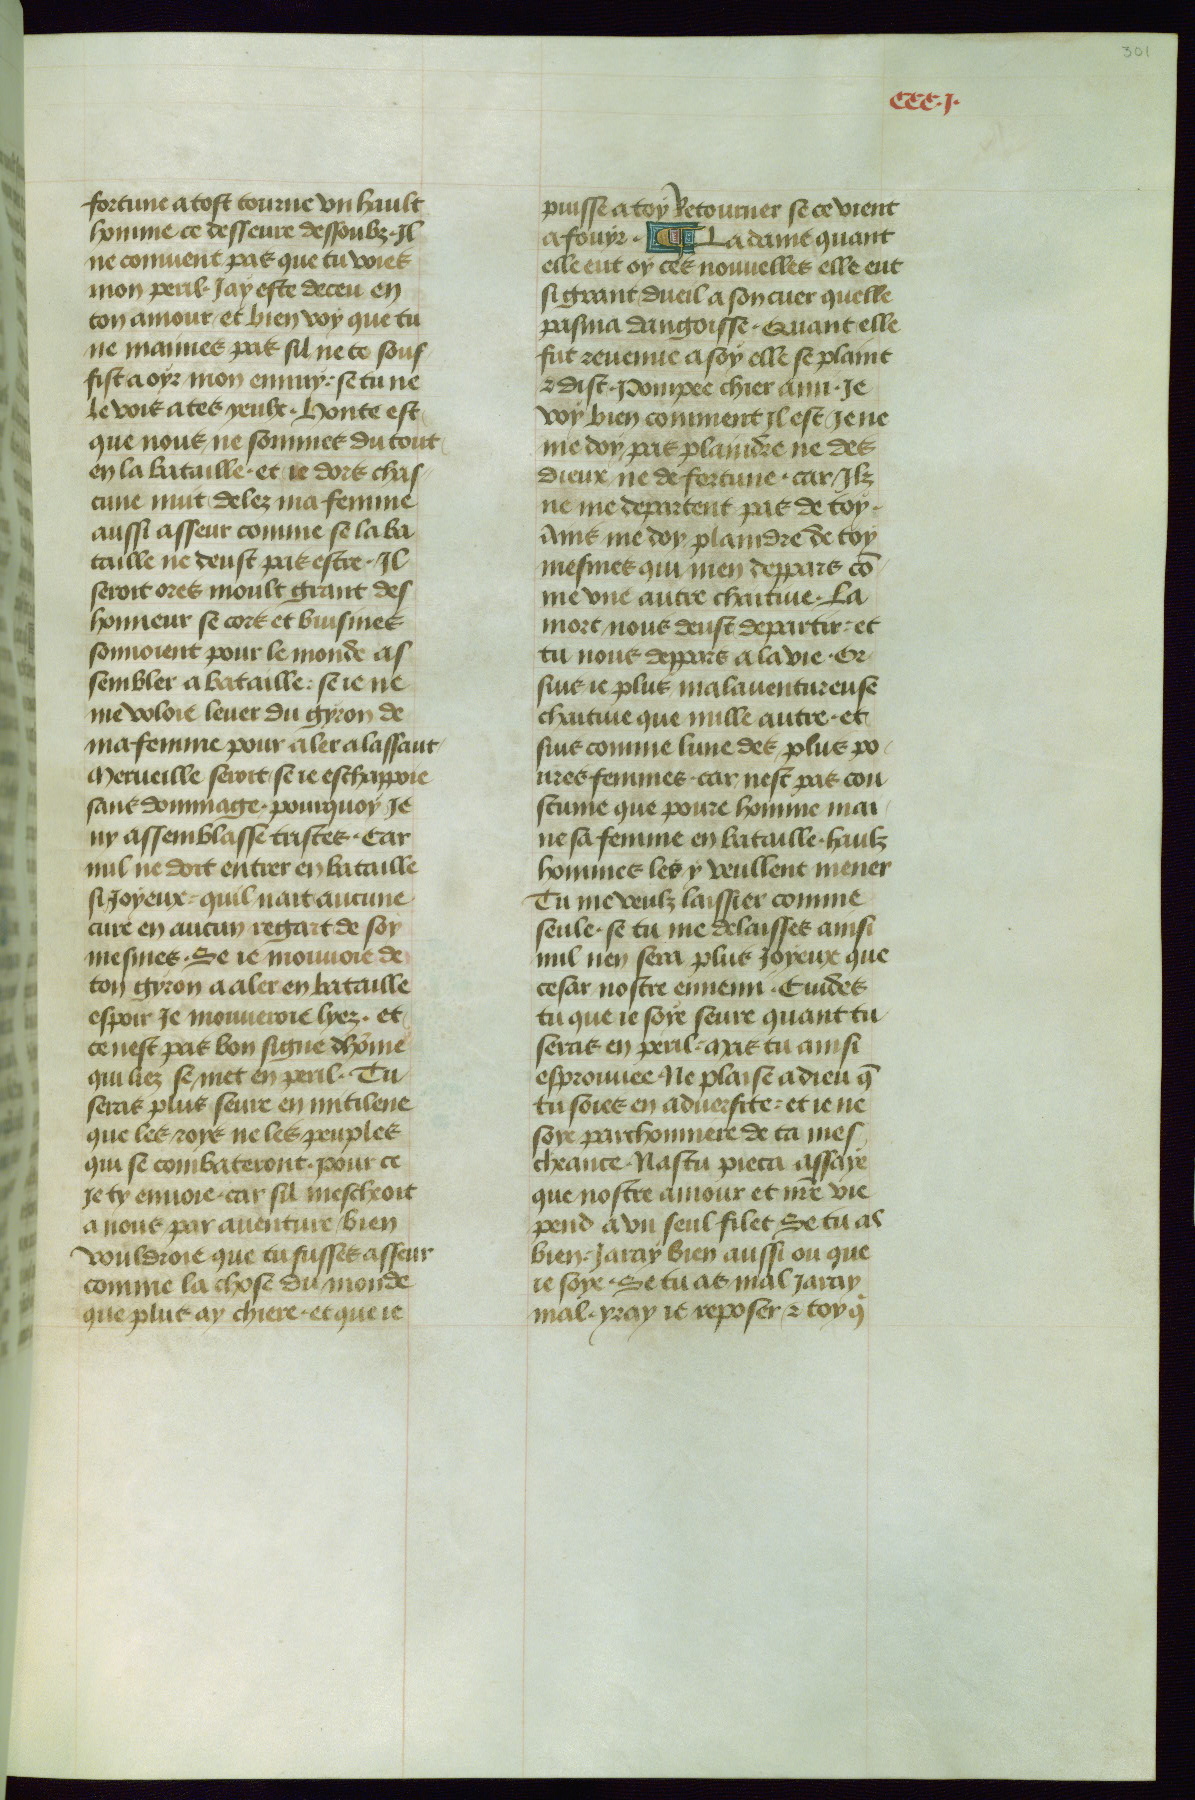 301
CCC.J.
fortune a tost tourne vn hault
homme ce desseure dessoubz. Jl
ne conuient pas que tu voies
mon peril. Jay este deceu en
ton amour / et bien voy que tu
ne maimes pas sil ne te souf
fist a oyr mon ennuy: se tu ne
le vois a tes yeulx. Honte est
que nous ne sommes du tout
en la bataille. et ie dors chas
cune nuit delez ma femme
aussi asseur comme se la ba
taille ne deust pas estre. Jl
seroit ores moult grant des
honneur se cors et buisines
sonnoient pour le monde as
sembler a bataille: se ie ne
me voloie leuer du gyron de
ma femme pour aler a lassaut
Merueille seroit se ie eschappoie
sans dommage. pourquoy Je
ny assemblasse tristes. Car
nul ne doit entrer en bataille
si Joyeux: quil nait aucune
cure en aucun regart de soy
mesmes. Se ie mouuoie de
ton gyron a aler en bataille
espoir Je mouueroie lyez. et
ce nest pas bon signe dhōme
qui liez se met en peril. Tu
seras plus seure en mitilene
que les roys ne les peuples
qui se combateront. pour ce
Je ty enuoie. car sil mescheoit
a nous par auenture / bien
vouldroie que tu fusses asseur
comme la chose du monde
que plus ay chiere. et que ie
puisse a toy Retourner se ce vient
a fouyr. La dame quant
elle eut oy ces nouuelles elle eut
si grant dueil a son cuer quelle
pasma dangoisse. Quant elle
fut reuenue a soy elle se plaint
⁊ dist. Pompee chier ami. Je
voy bien comment Jl est / Je ne
me doy pas plaindre ne des
dieux ne de fortune. car Jlz
ne me departent pas de toy.
Ains me doy plaindre de toy
mesmes qui men deppars cō
me vne autre chaitiue. La
mort nous deust departir: et
tu nous deppars a la vie. Or
suis ie plus malauentureuse
chaitiue que mille autre. et
suis comme lune des plus po
ures femmes. car nest pas cou
stume que poure homme mai
ne sa femme en bataille. haulz
hommes les y veullent mener
Tu me veulz laissier comme
seule. se tu me delaisses ainsi
nul nen sera plus Joyeux que
cesar nostre ennemi. Cuides
tu que ie soye seure quant tu
seras en peril. Mas tu ainsi
esprouuee. Ne plaise a dieu q̄
tu soies en aduersite: et ie ne
soye parchonniere de ta mes
cheance. Nas tu pieca assaye
que nostre amour et nr̄e vie
pend a vn seul filet Se tu as
bien: Jaray bien aussi ou que
ie soye. Se tu as mal Jaray
mal. yray ie reposer ⁊ toy q̄